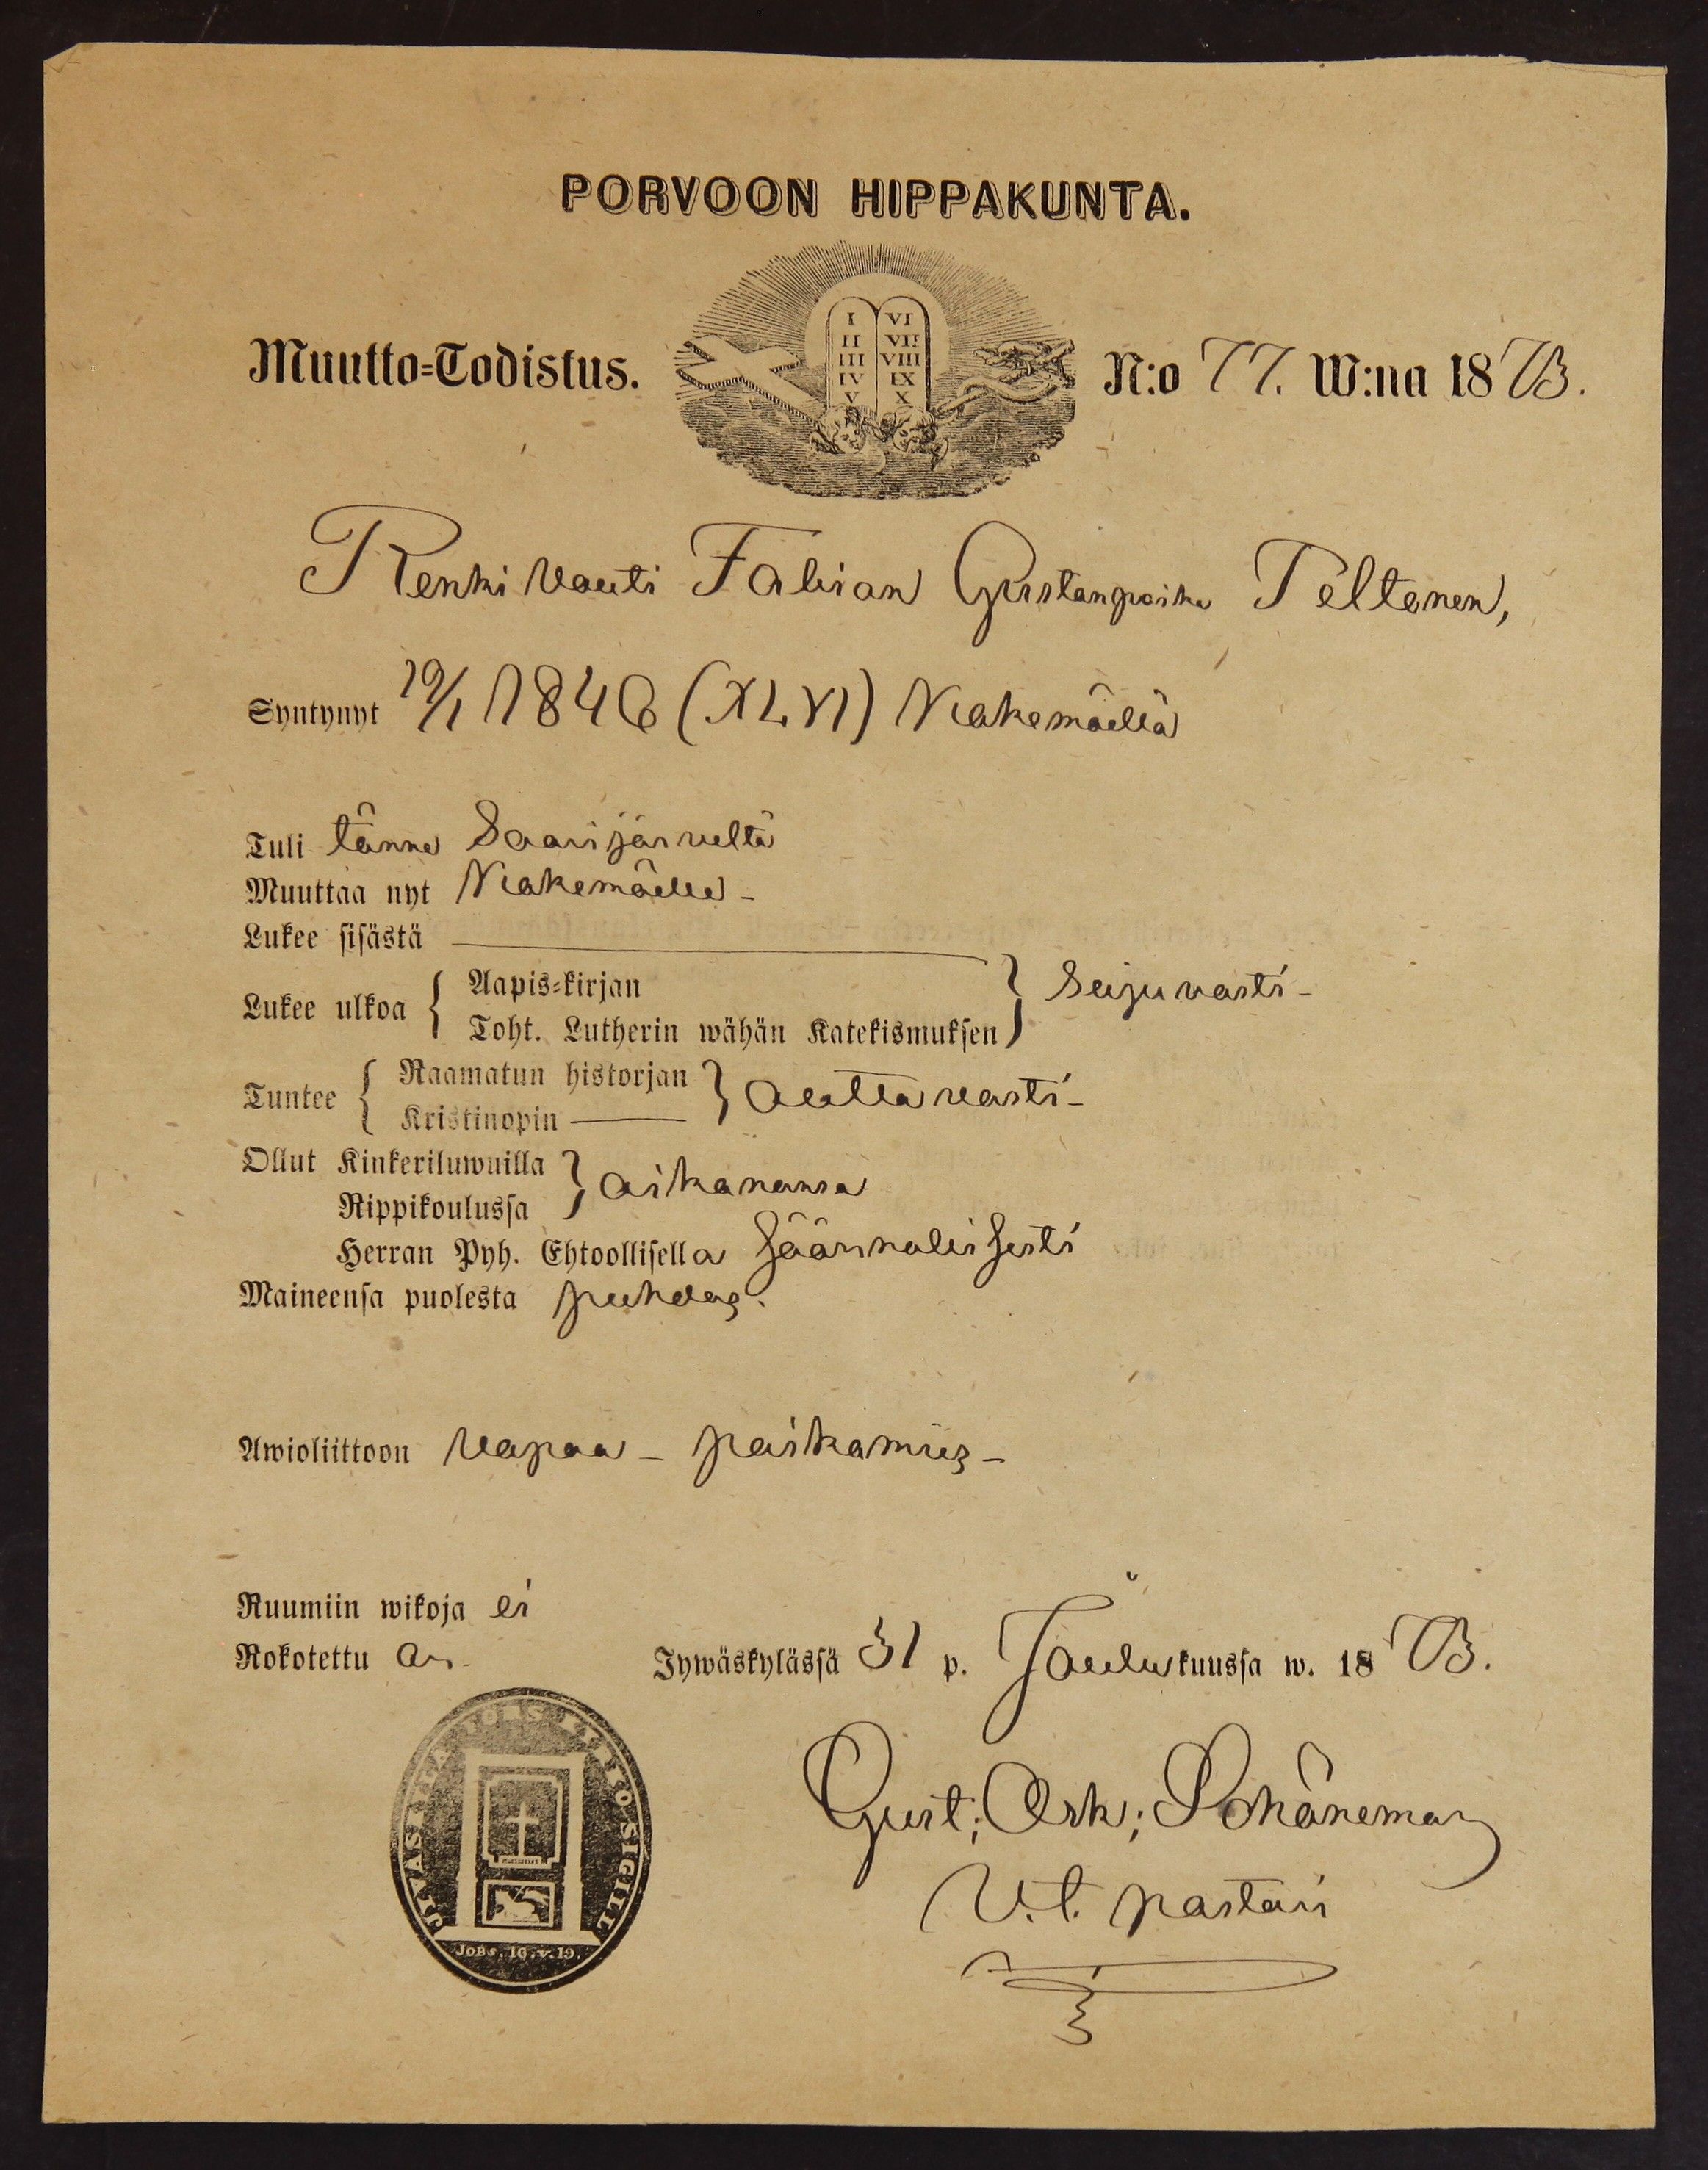 PORVOON HIPPAKUNTA.
I VI
II VII
III VIII
IV IX
V X
Muutto=Todistus. N:o 77. W:na 1873.
Renki vouti Fabian Gustanpoika Peltonen,
Syntynyt 19/1 1846 (XLVI) Viakemäellä
Tuli tänne Saarijärveltä
Muuttaa nyt Viakemäelle -
Lukee sisästä
Lukee ulkoa { Aapis=kirjan
Toht. Lutherin wähän Katekismuksen } Sujuvasti -
Tuntee { Raamatun historjan
Kristinopin } auttavasti -
Ollut Kinkeriluwuilla
Rippikoulussa } aikanansa
Herran Pyh. Ehtoollisella Säännöllisesti
Maineensa puolesta puhdas.
Awioliittoon vapaa - poikamies -
Ruumiin wikoja ei
Rokotettu on.
Jywäskylässä 31 p. Joulukuussa w. 1873.
Gust; Osk; Schöneman
V.t. pastori
JOBS. 19. v. 19.